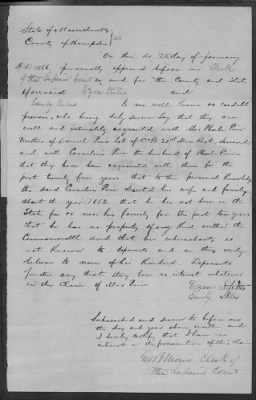 State of Massachusetts }
County of Hampden } ss
On this day of January
A.D. 1866 personally appeared before me Clerk
of the Superior Court in and for the County and State
aforesaid Ezra Stiles and
Emily Stiles to me well known as credible
persons, who being duly sworn say that they are
well and intimately acquainted with Mrs Phebe
Mother of Daniel late of Co 25th Mass Regt, deceased,
and with Cornelius the husband of Phebe
that they have been acquainted with them for the
past twenty four years that to their personal knowledge
the said Cornelius deserted his wife and family
about the year 1852 that he has not been in the
State for or near his family for the past ten years
that he has no property of any kind within the
Commonwealth And that his whereabouts is
not known to deponents and as they verily
believe to none of his Kindred Deponents
further say that they have no interest whatever
in the Claim of Mrs
Ezra Stiles
Emily Stiles
Subscribed and sworn to before me
the day and year above written and
I hereby certify that I have no
interest in the prosecution of this claim
Morris Clerk of
the Superior Court